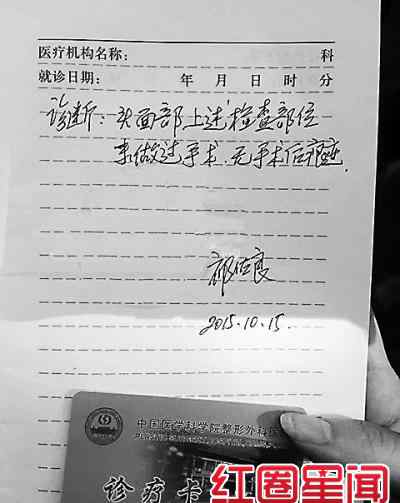 医疗机构名称: 科
就诊日期: 年 月 日 时 分
诊断: 头面部上述检查部位
未做过手术、无手术后瘢痕.
祁佐良
2015.10.15.
中国医学科学院整形外科
诊疗卡
红圈星闻